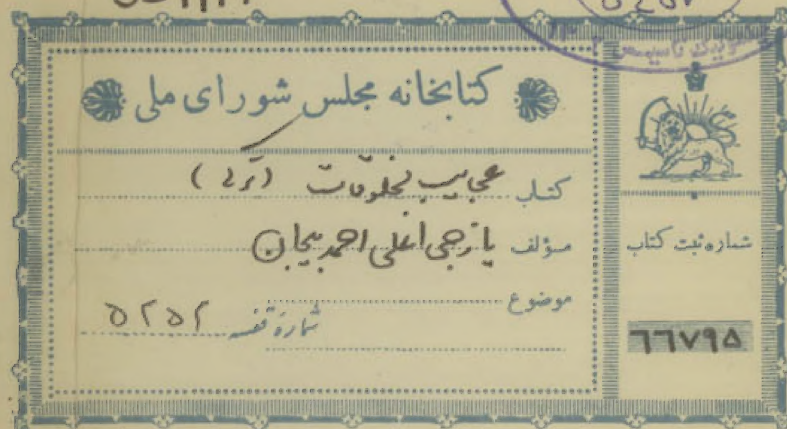 کتابخانه مجلس شورای ملی
کتاب عجایب مخلوقات (ترکی)
مؤلف یازجی اغلی احمد بیجان
موضوع
شمارهٔ قفسه ۵۲۵۲
شماره ثبت کتاب
۶۶۷۹۵